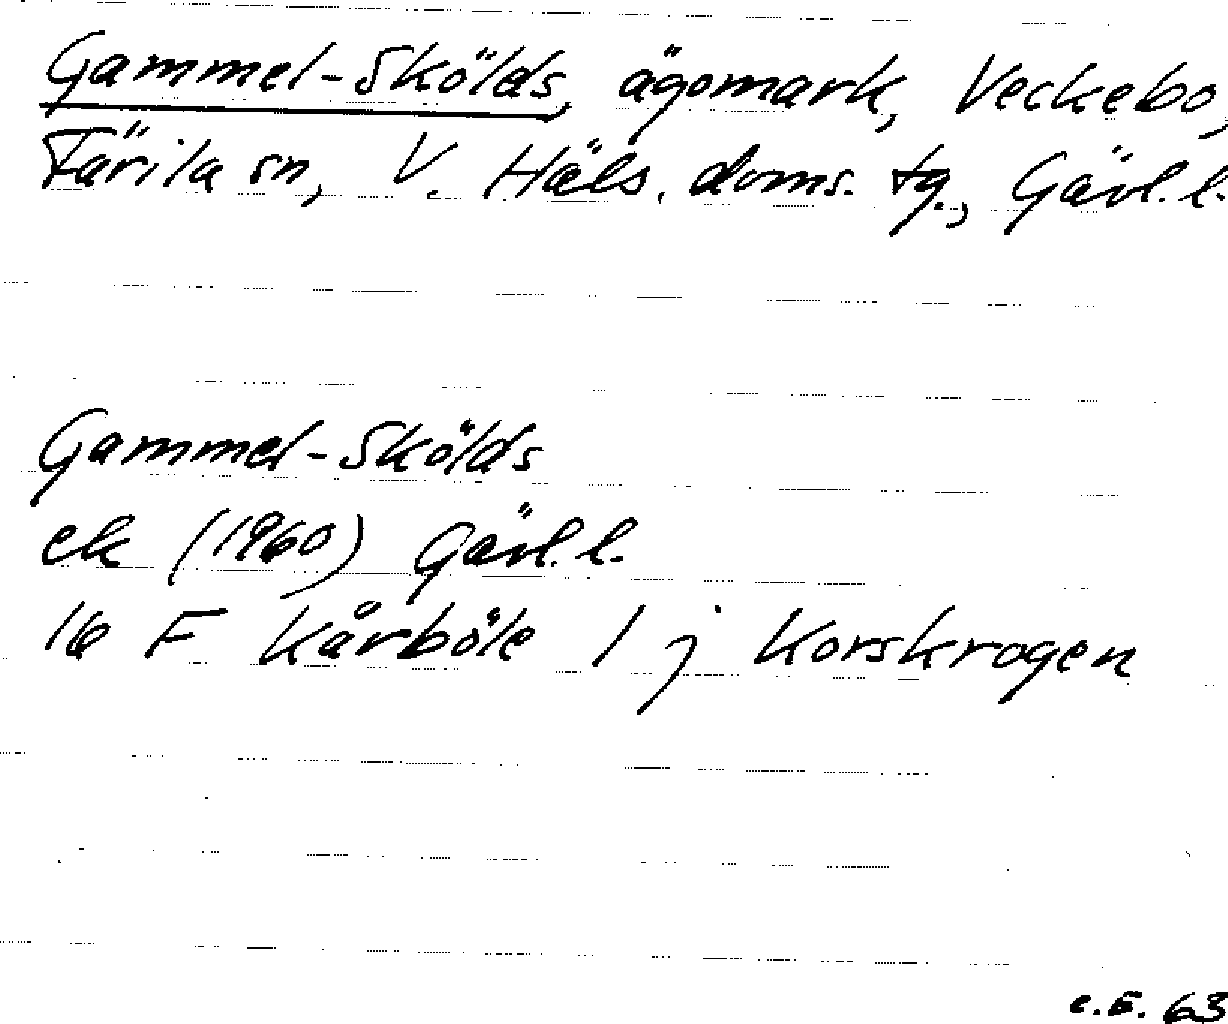 Gammel-Skölds, ägomark, Veckebo,
Färila sn, V. Häls. doms. tg., Gävl. l.
Gammel-Skölds
ek (1960) Gävl. l.
16 F Kårböle 1 j Korskrogen
C.E. 63